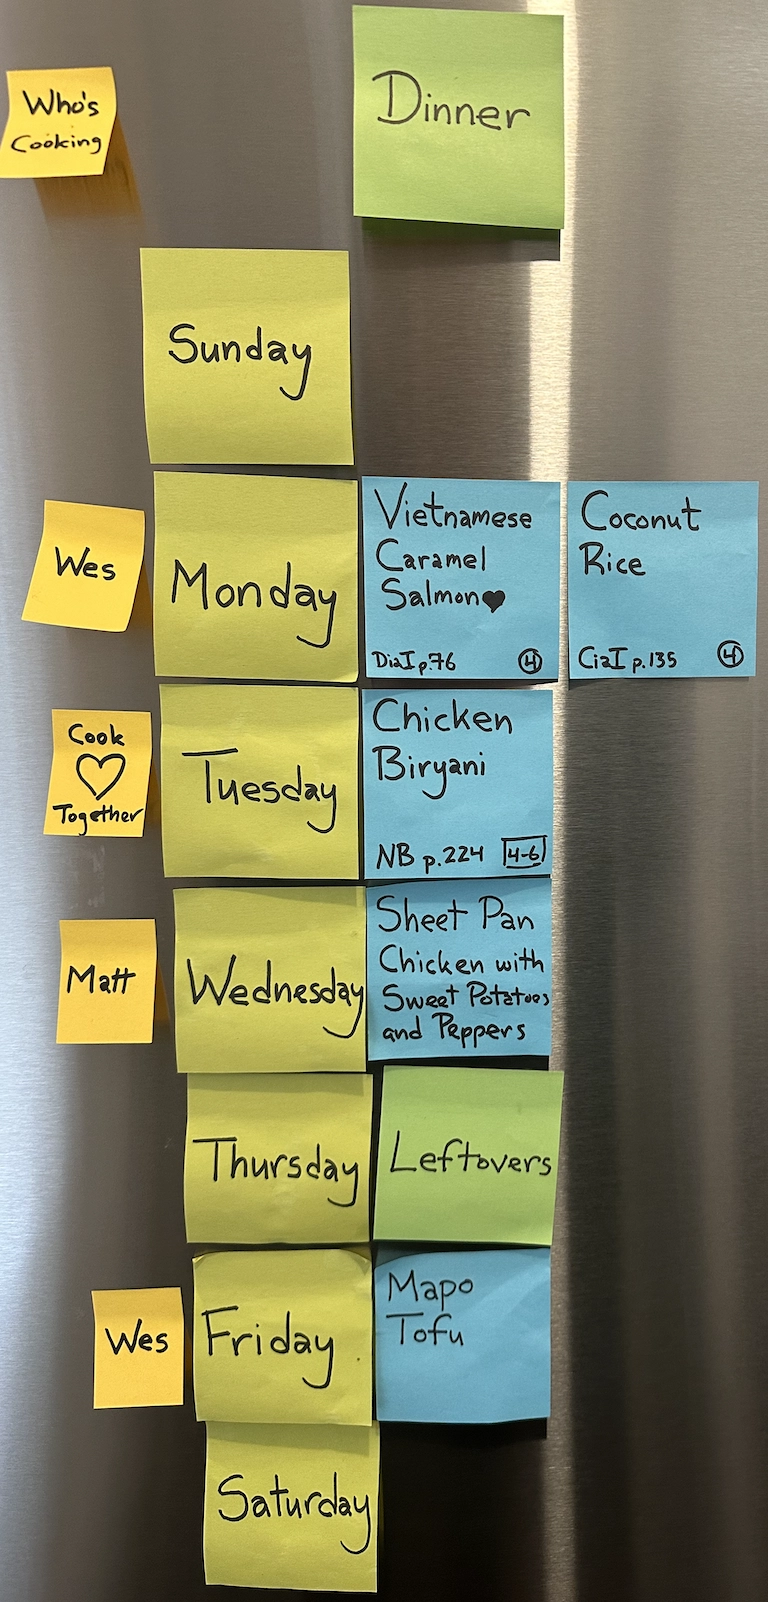 Who's
Cooking
Dinner
Sunday
Wes
Monday
Vietnamese
Caramel
Salmon♥
DiaI p.76 ④
Coconut
Rice
CiaI p.135 ④
Cook
♡
Together
Tuesday
Chicken
Biryani
NB p.224 4-6
Matt
Wednesday
Sheet Pan
Chicken with
Sweet Potatoes
and Peppers
Thursday
Leftovers
Wes
Friday
Mapo
Tofu
Saturday